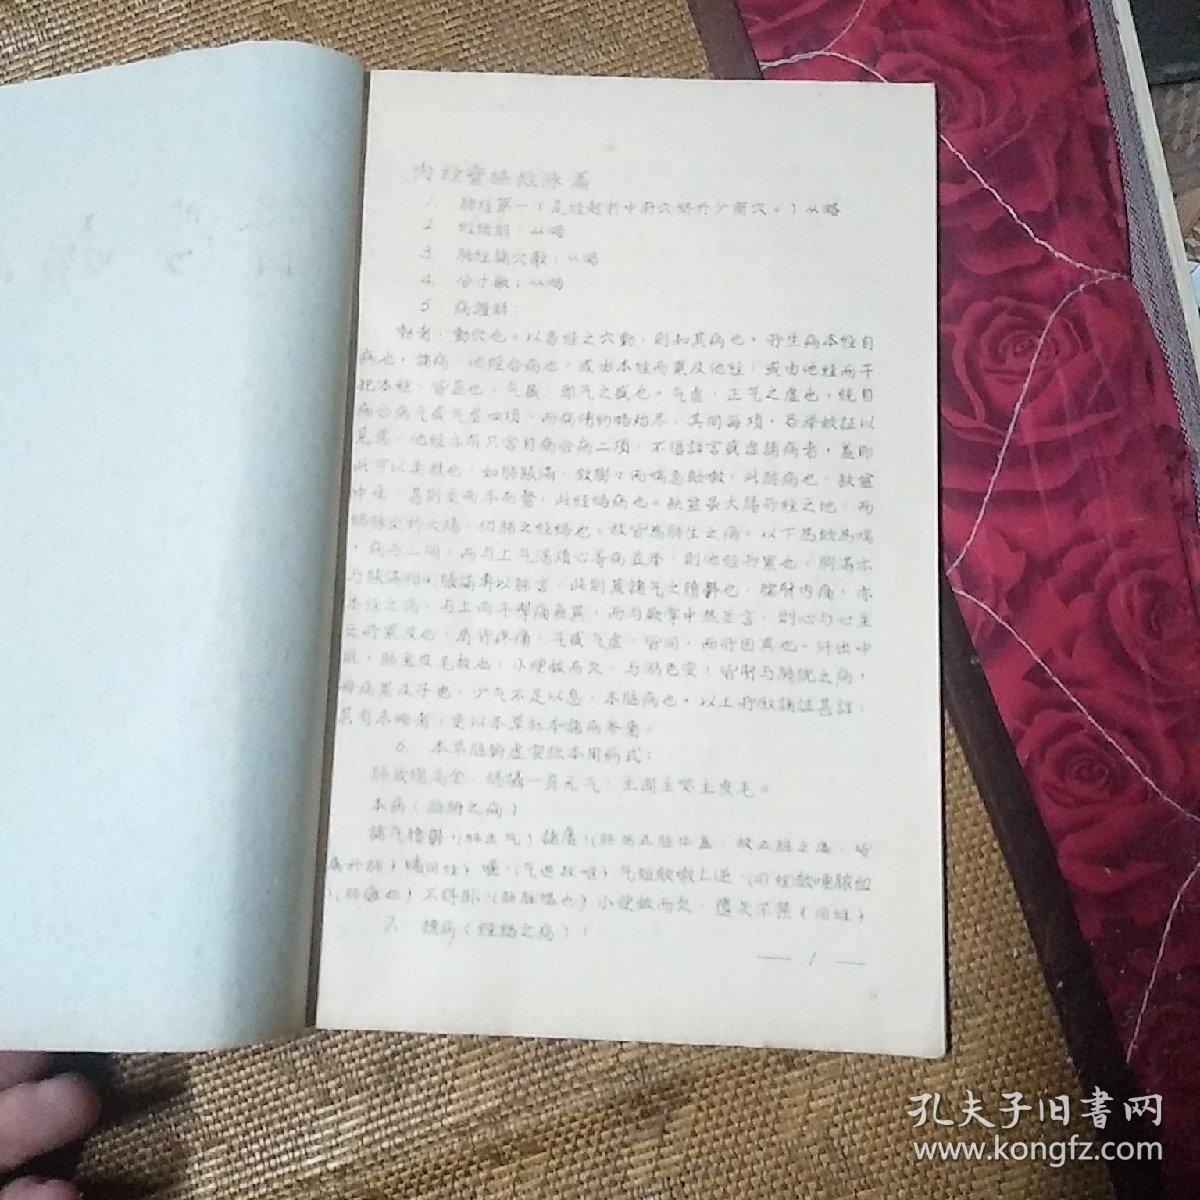 内经灵樞经脉篇
1. 肺经第一：（是经起於中府穴終於少商穴。）从略
2. 经絡解：从略
3. 肺经諸穴歌：从略
4. 分寸歌：从略
5. 病證解：
動者，動穴也。以息经之穴動，則知其病也，所生病本经自
病也，諸病，他经合病也，或由本经而累及他经，或由他经而干
犯本经，皆是也，气盛，邪气之盛也。气虚，正气之虚也，統自
病合病气盛气虚四項，而病情約略殆尽，其間每項，各举数証以
見意，他经亦有只言自病合病二項，不過詳言盛虚諸病者，蓋即
此可以类推也，如肺脹滿，致膨々而喘息咳嗽，此臟病也，缺盆
中痛，甚則交兩手而瞀，此经絡病也。缺盆是大腸所经之地，而
絡脉交於大腸，仍肺之经絡也。故皆為肺生之病。以下為欬為喘
，病与二同，而与上气渴煩心等病並举，則他经所累也，胸滿亦
与脹滿相同，脹滿專以肺言，此則蓋諸气之膹鬱也，臑臂内痛，亦
本经之病，与上兩手掣痛無異，而与厥掌中熱並言，則心与心主
之所累及也，肩背疼痛，气盛气虚，皆同，而所因異也。汗出中
風，肺主皮毛故也，小便数而欠，与溺色变，皆腎与膀胱之病，
母病累及子也，少气不足以息，本臟病也。以上所叙諸証甚詳，
其有未備者，更以本草标本諸病参看。
6. 本草脏腑虚实标本用病式：
肺藏魄属金，總攝一身元气，主聞主哭主皮毛。
本病（脏腑之病）
諸气膹鬱，（肺主气）諸痿，（肺為五脏华蓋，故五脏之痿，皆
属於肺）喘（同经）嘔，（气逆故嘔）气短欬嗽上逆，（同经）欬唾膿血
，（肺癰也）不得卧，（肺脏喘也）小便数而欠，遺矢不禁（同经）
7. 标病（经絡之病）：
— 1 —
孔夫子旧書网
www.kongfz.com